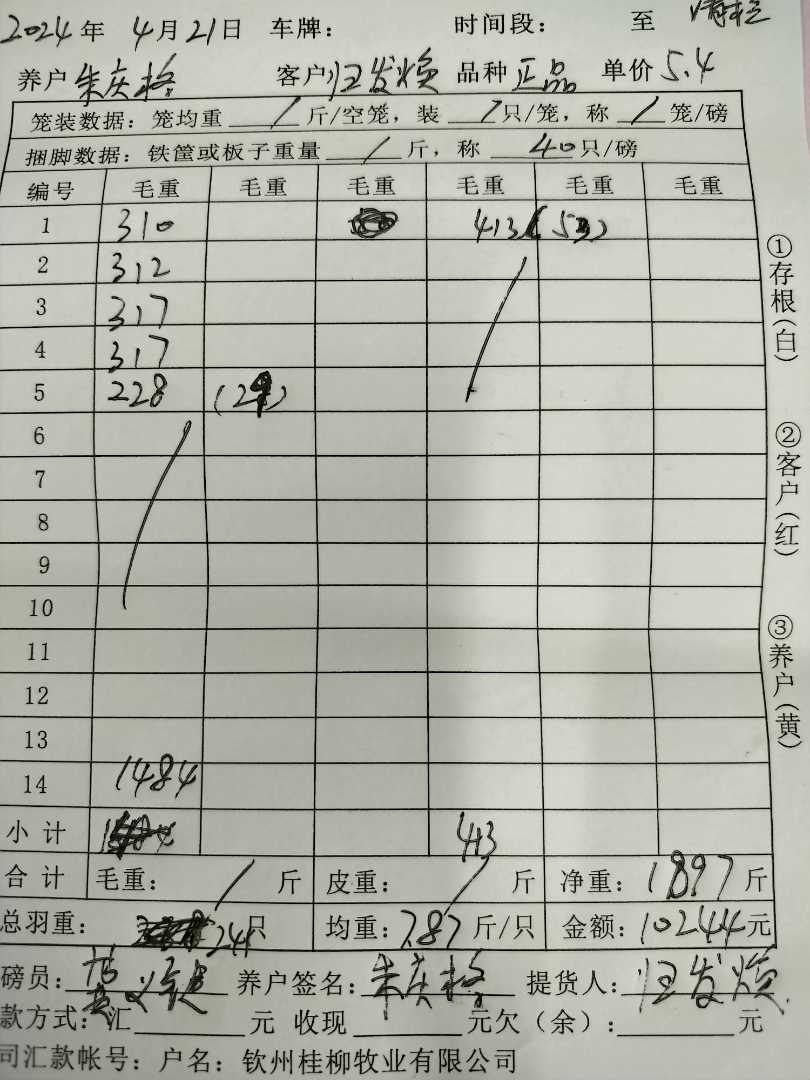 2024年 4月21日 车牌： 时间段： 至
养户 朱庆格 客户 汪发焕 品种 正品 单价 5.4
笼装数据：笼均重 / 斤/空笼，装 / 只/笼，称 / 笼/磅
捆脚数据：铁筐或板子重量 / 斤，称 40 只/磅
编号 毛重 毛重 毛重 毛重 毛重 毛重
1 310 413 (53)
2 312
3 317
4 317
5 228
6
7
8
9
10
11
12
13
14 1484
小计 413
合计 毛重： / 斤 皮重： / 斤 净重：1897斤
总羽重： 241只 均重：7.87斤/只 金额：10244元
磅员： 养户签名：朱庆格 提货人：汪发焕
款方式：汇 元 收现 元欠（余）： 元
司汇款帐号：户名：钦州桂柳牧业有限公司
①存根(白)
②客户(红)
③养户(黄)